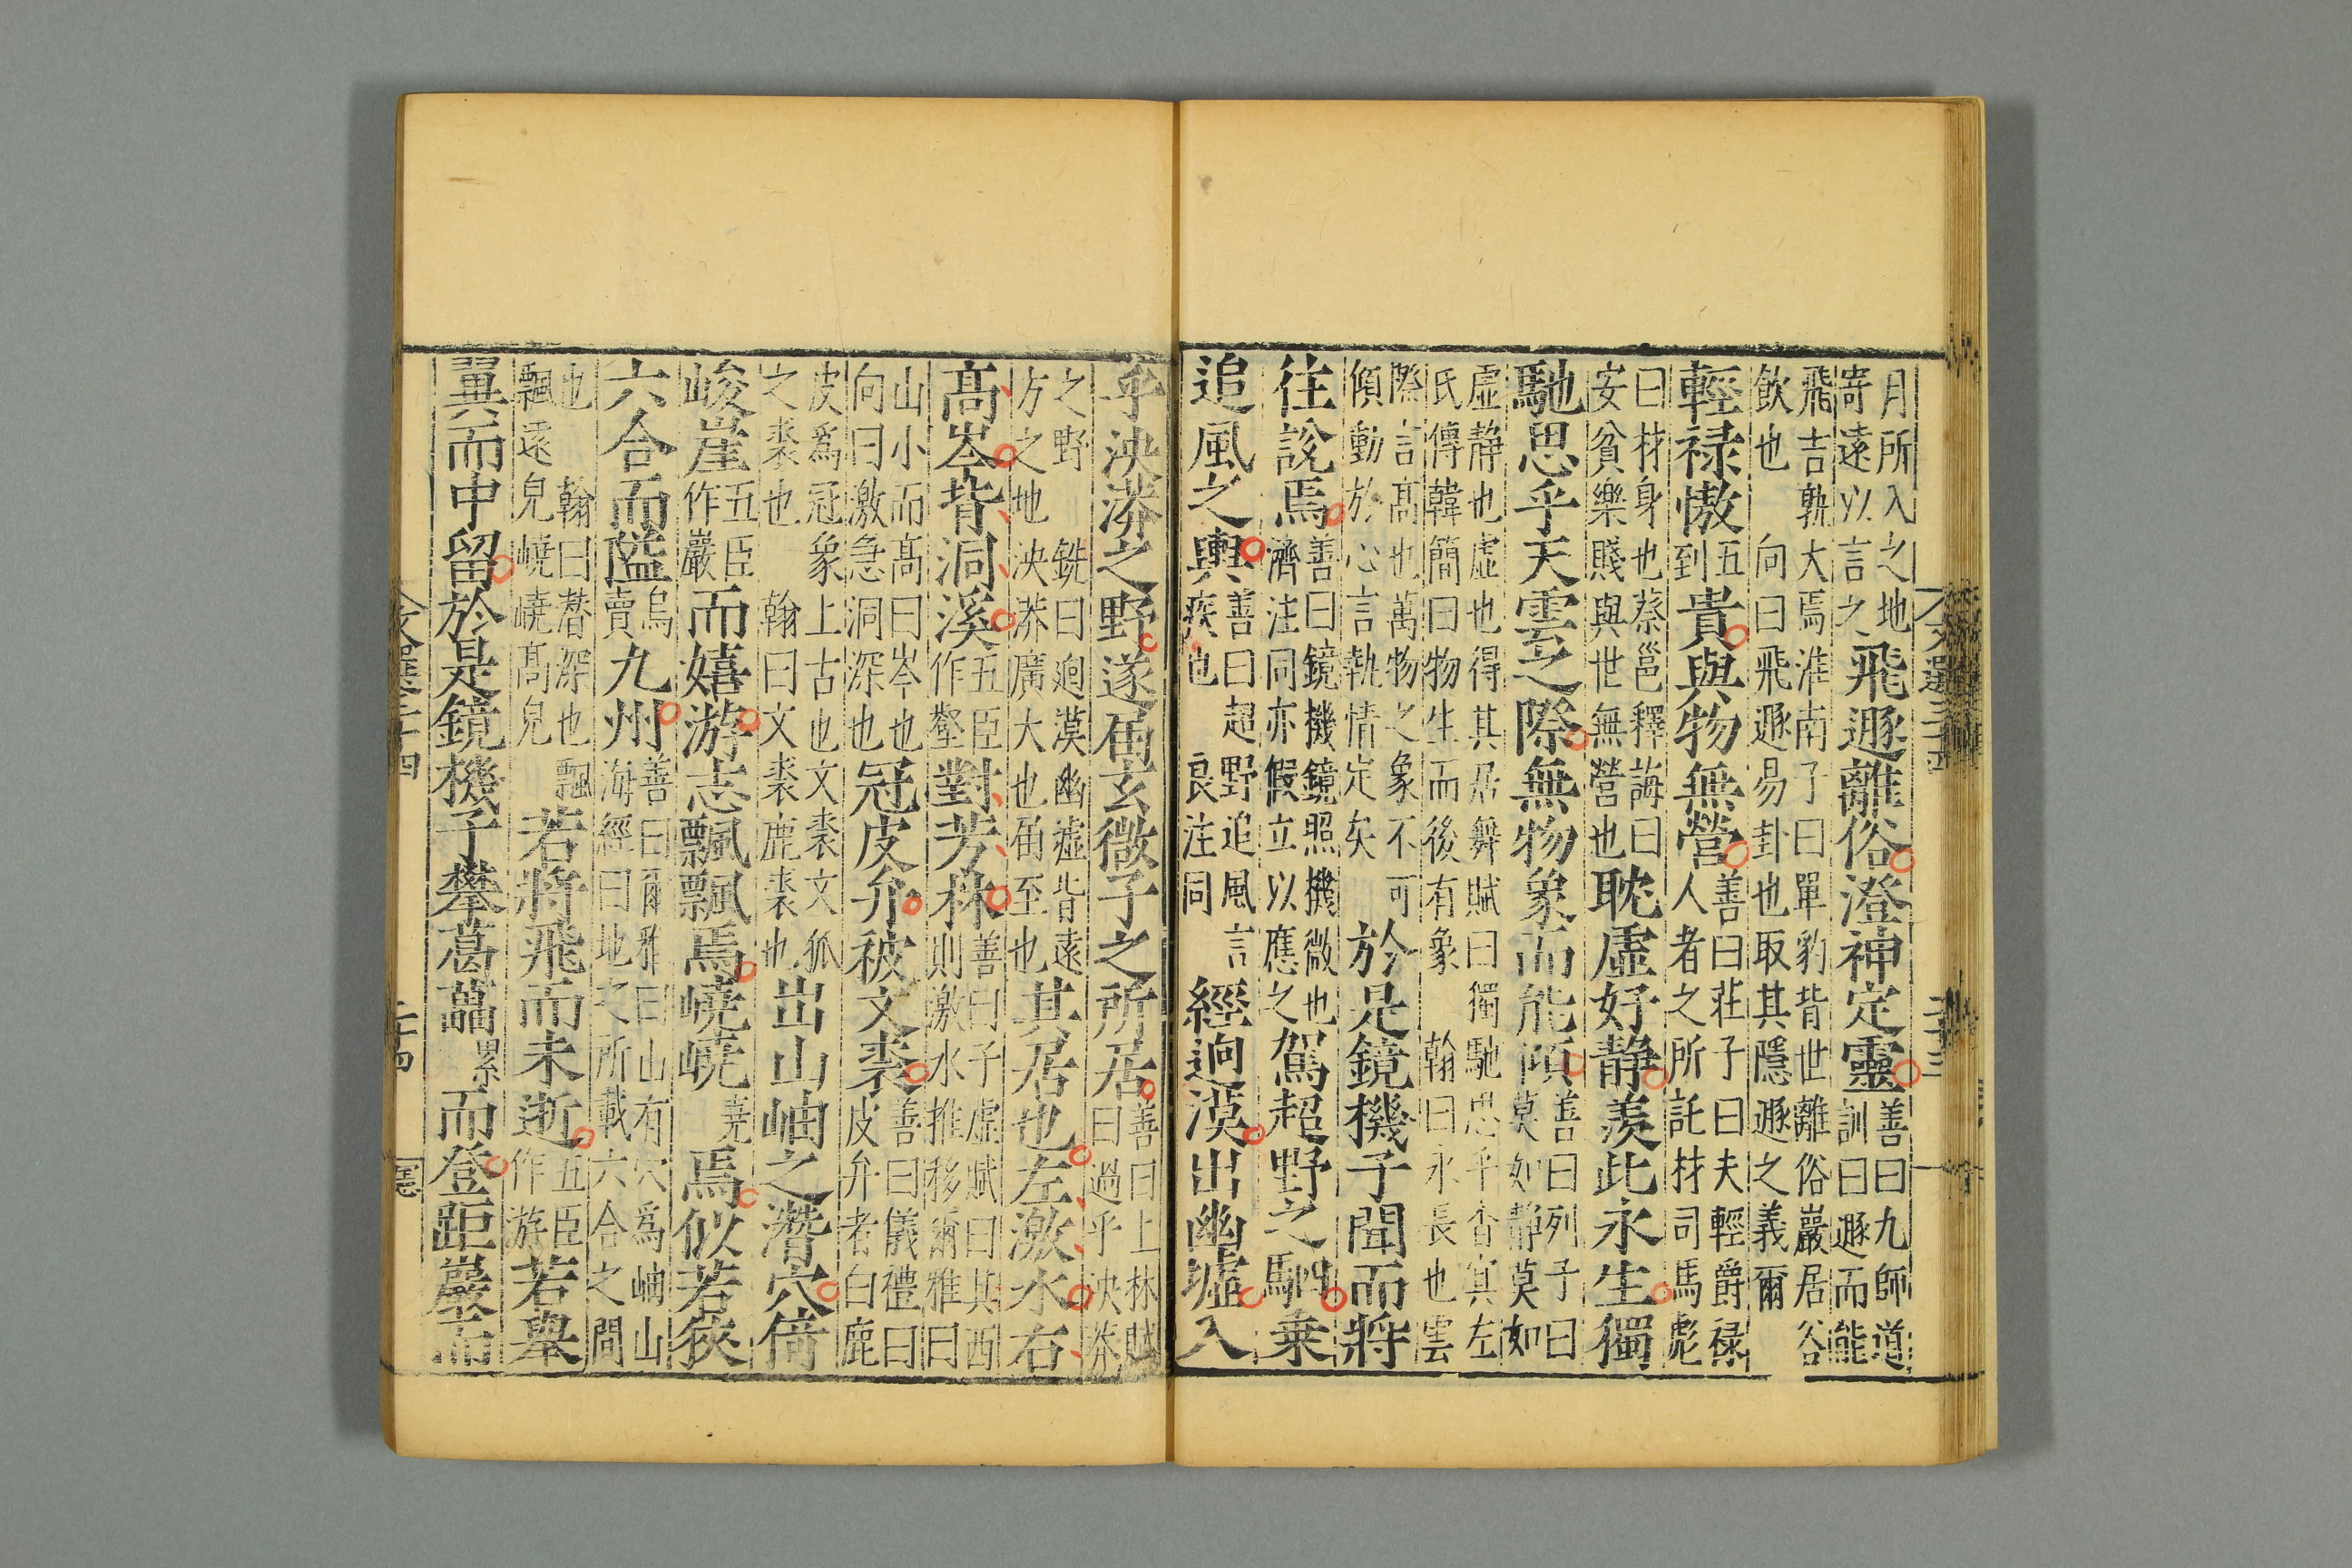 月所入之地
寄遠以言之
飛遯離俗澄神定靈
善曰九師道
訓曰遯而能
飛吉孰大焉淮南子曰單豹背世離俗巖居谷
飲也　向曰飛遯易卦也取其隱遯之義爾
輕祿慠
五
到
貴與物無營
善曰莊子曰夫輕爵祿
人者之所託材司馬彪
曰材身也蔡邕釋誨曰
安貧樂賤與世無營也
耽虛好靜羨此永生獨
馳思乎天雲之際無物象而能傾
善曰列子曰
莫如靜莫如
虛靜也虛也得其居舞賦曰獨馳思乎杳冥左
氏傳韓簡曰物生而後有象　翰曰永長也雲
際言高也萬物之象不可
傾動於心言執情定矣
於是鏡機子聞而將
往說焉
善曰鏡機鏡照機微也
濟注同亦假立以應之
駕超野之駟乗
追風之輿
善曰超野追風言
疾也　良注同
經逈漠出幽墟入
乎泱漭之野遂屆玄微子之所居
善曰上林賦
曰過乎泱漭
之野　銑曰逈漠幽墟皆遠
方之地泱漭廣大也屆至也
其居也左激水右
高岑背洞溪
五臣
作壑
對芳林
善曰子虛賦曰其西
則激水推移爾雅曰
山小而高曰岑也
向曰激急洞深也
冠皮弁被文裘
善曰儀禮曰
皮弁者白鹿
皮爲冠象上古也文裘文狐
之裘也　翰曰文裘鹿裘也
出山岫之潛穴倚
峻崖
五臣
作巖
而嬉游志飄飄焉嶢嶢
尭
焉似若狹
六合而隘
烏
賣
九州
善曰爾雅曰山有穴爲岫山
海經曰地之所載六合之間
也　翰曰潛深也飄
飄遠皃嶢嶢高皃
若將飛而未逝
五臣
作游
若舉
翼而中留於是鏡機子攀葛藟
累
而登距巖而
文選三十四
二十四